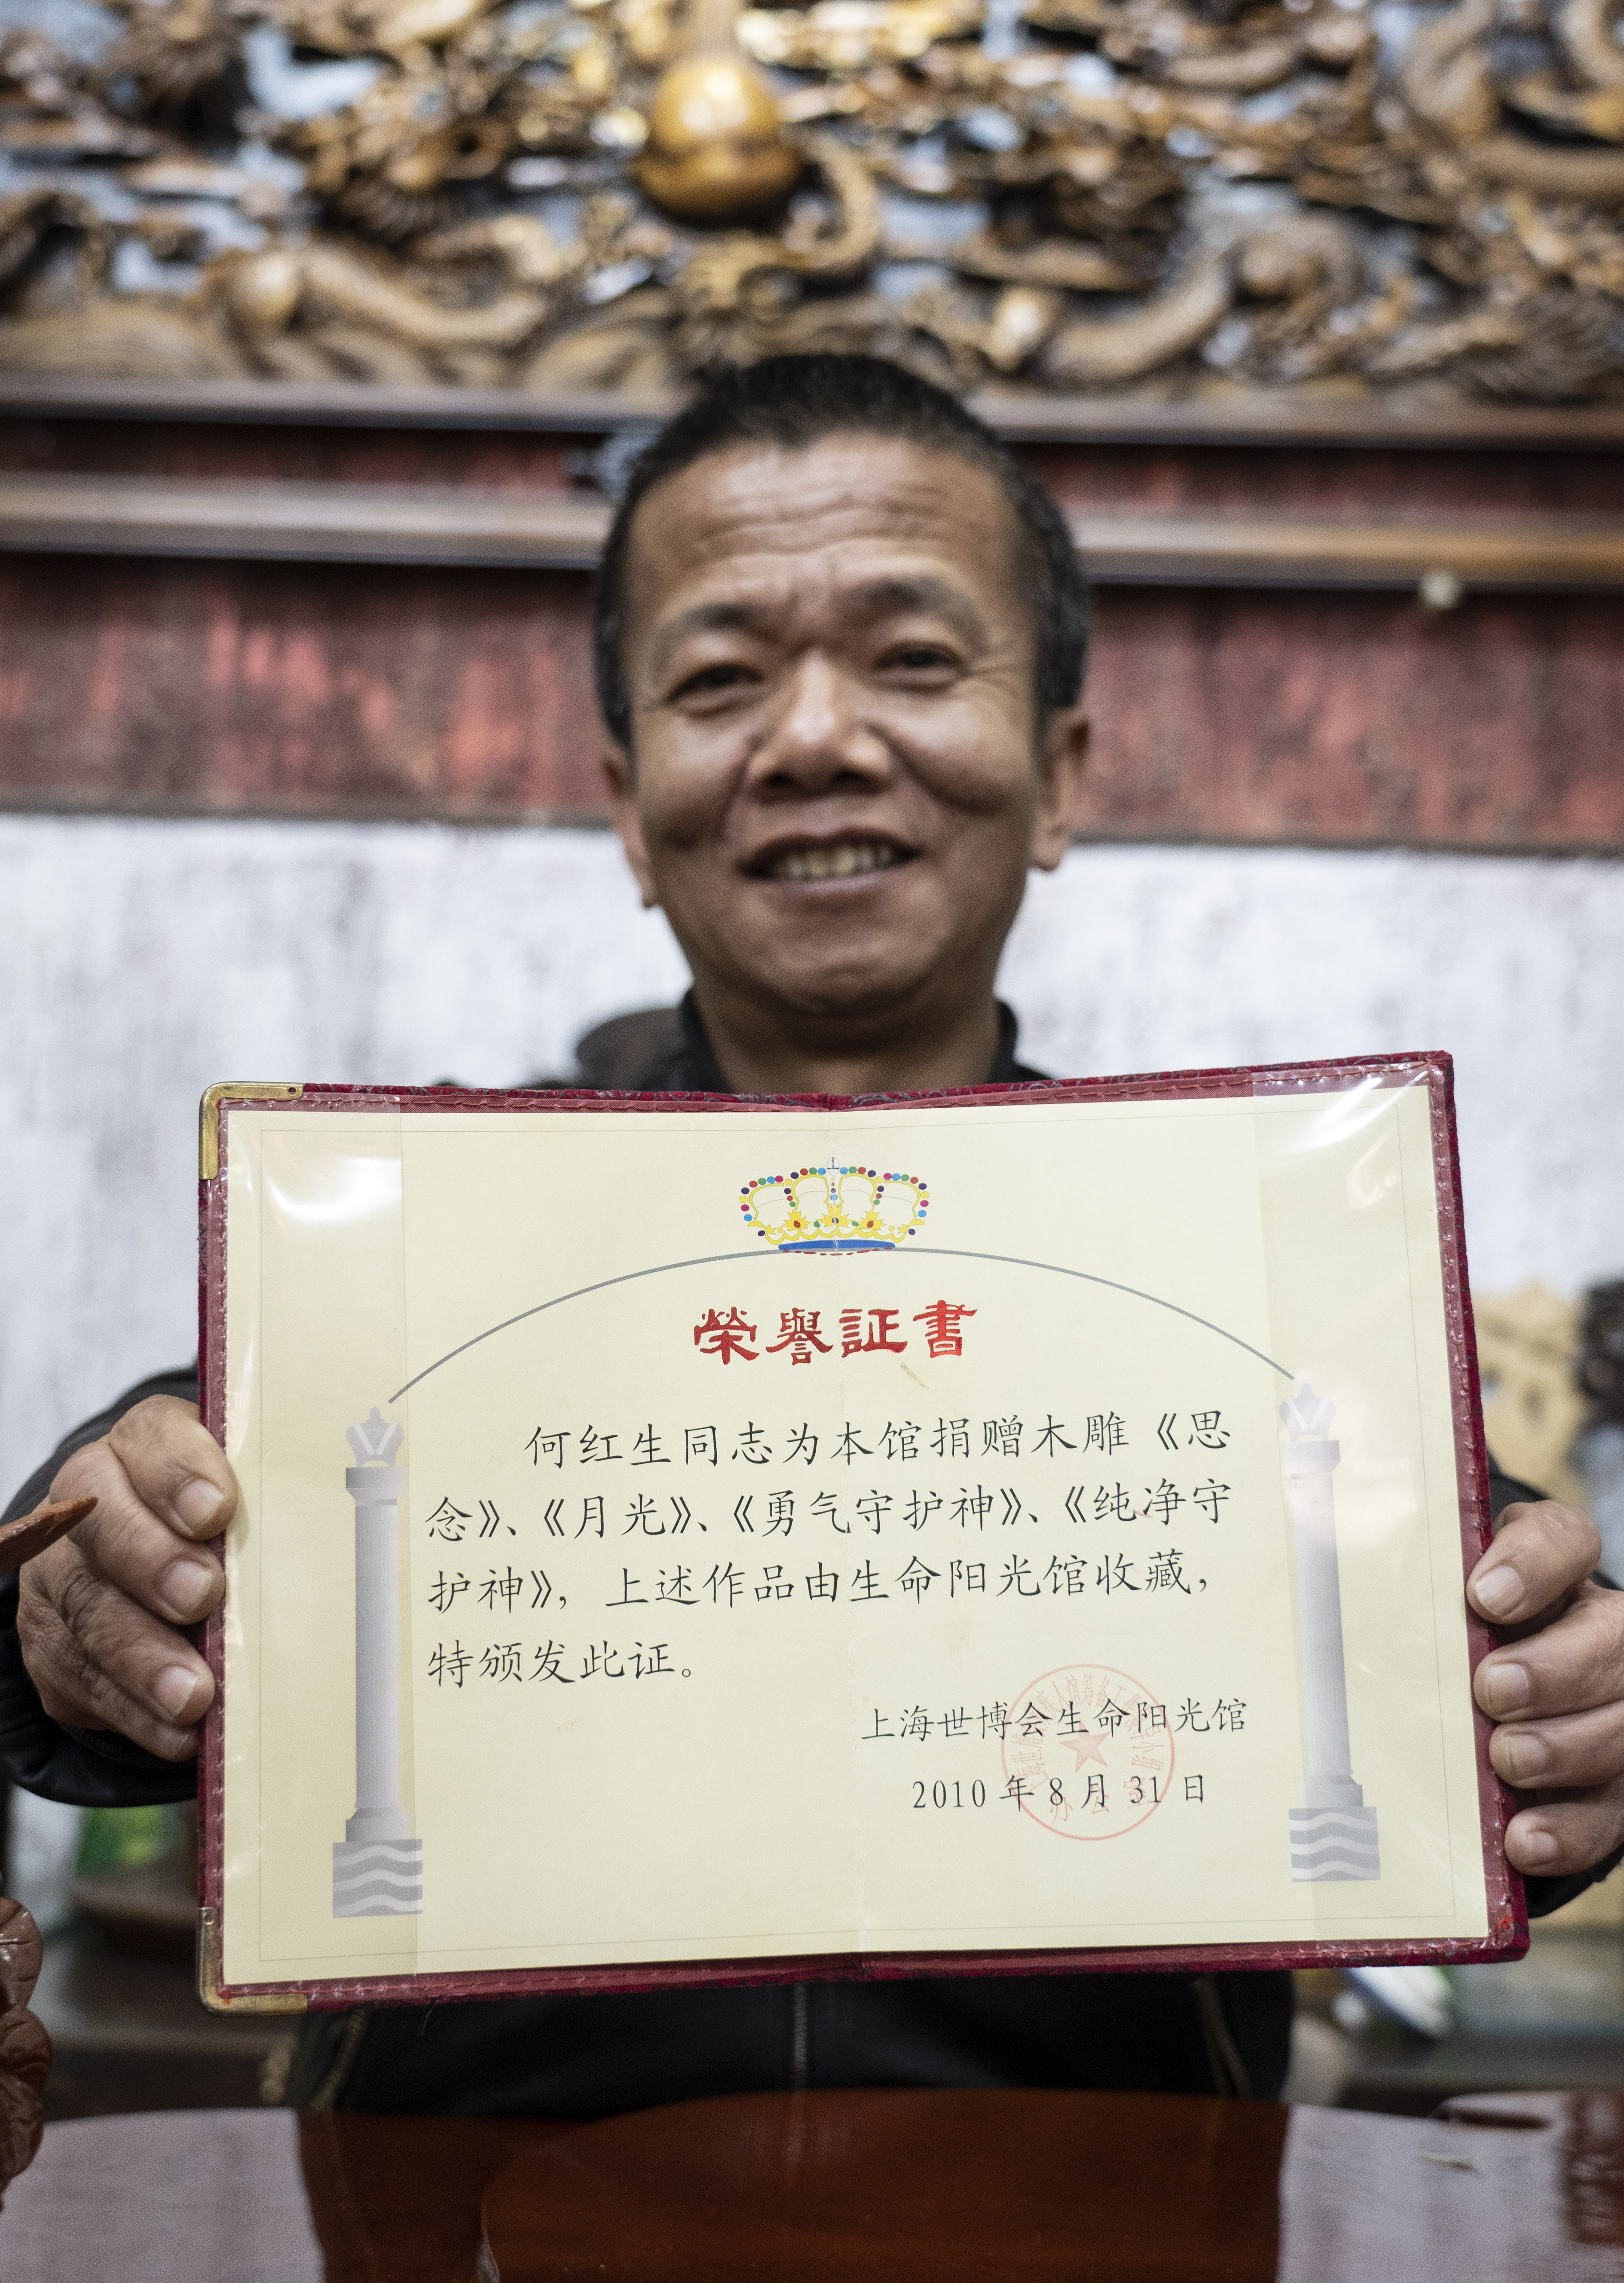 榮譽証書
何红生同志为本馆捐赠木雕《思
念》、《月光》、《勇气守护神》、《纯净守
护神》，上述作品由生命阳光馆收藏，
特颁发此证。
上海世博会生命阳光馆
2010年8月31日
办公室